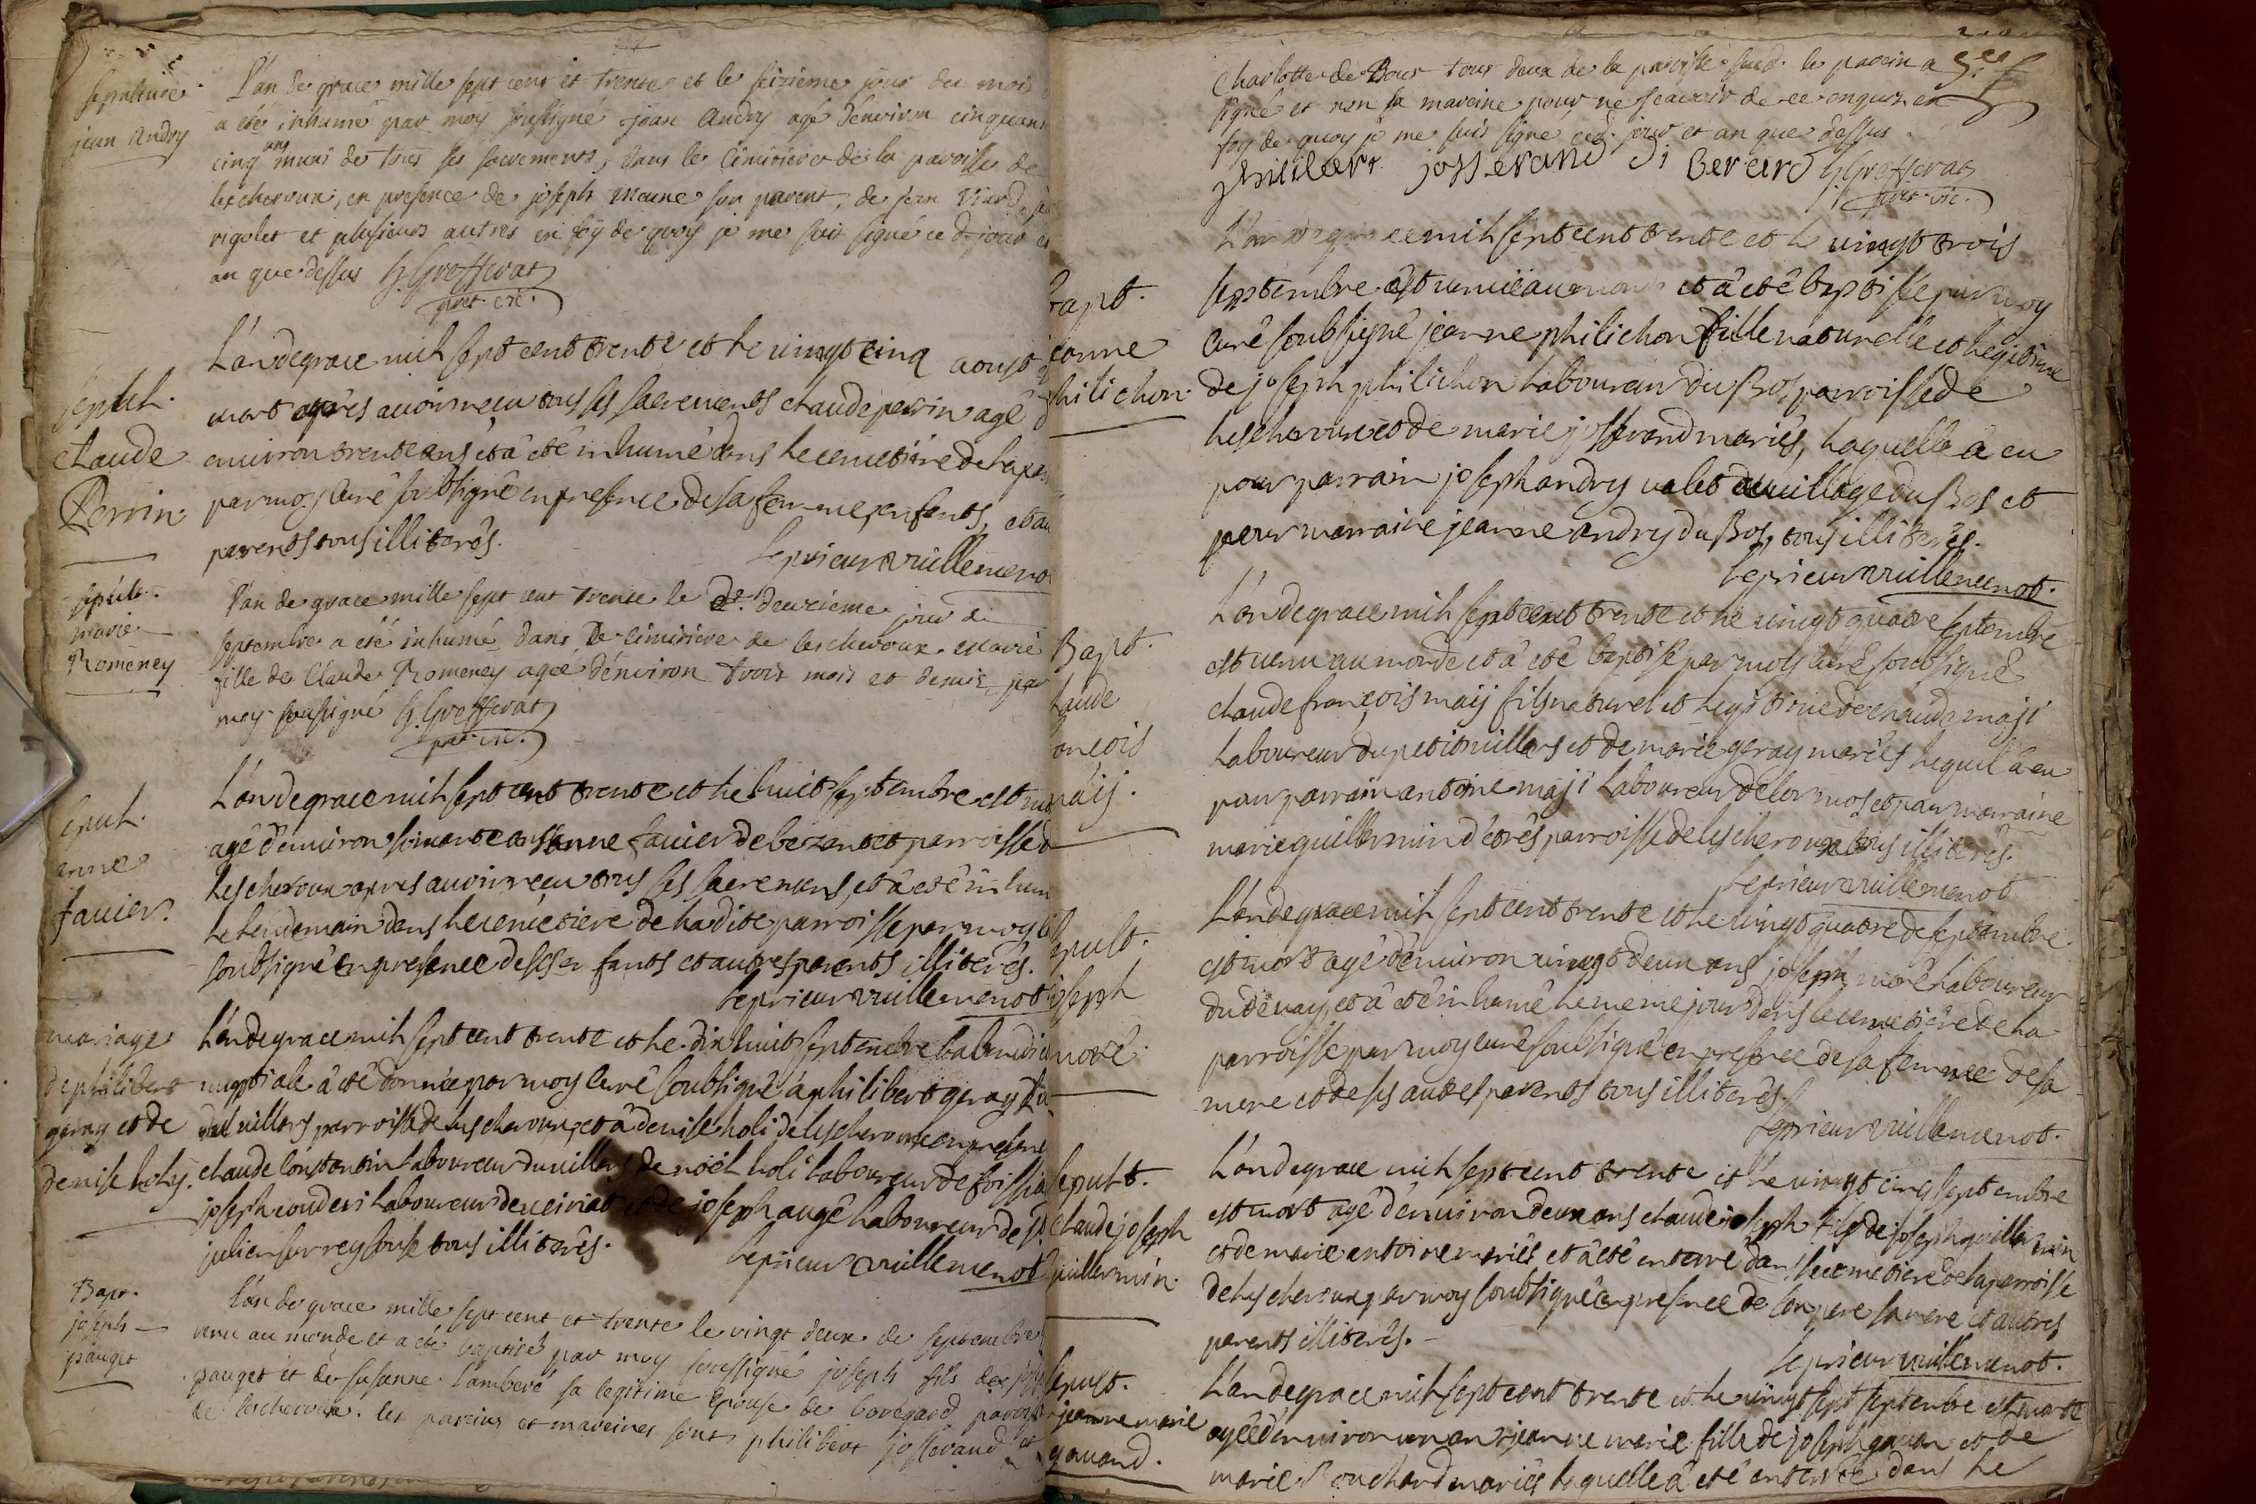 sepulture
jean Andry
L'an de grace mille sept cens et trente et le seizieme jour du mois
a été inhumé par moy soussigné jean Andry agé d'environ cinquante
cinq ans muni de tous ses sacremens, dans le cimitiere de la paroisse de
lescheroux, en presence de joseph son parent, de jean
rigolet et plusieurs autres en foy de quoy je me suis signé ce d. jour et
an que dessus G. Greffierat
pret. vic.
sepult.
claude
Perrin
L'an de grace mil sept cent trente et le vingt cinq aoust
mort apres avoir receu tous ses sacrements claude perrin agé
environ trente ans et â eté inhumé dans le cemetiére de la
par moy curé soubsigné en presence de sa femme, enfents, et
parents tous illiterês.
le prieur vuillemenot
sépult.
marie
Romeney
L'an de grace mille sept cent trente le deuxieme jour de
septembre a été inhumé dans le cimitiere de lescheroux marie
fille de Claude Romeney agée d'environ trois mois et demis par
moy soussigné G. Greffierat
pret. vic.
sepul.
anne
favier
L'an de grace mil sept cent trente et le huit septembre est
agé d'environ ans anne favier de parroisse
lescheroux apres avoir receu tous ses sacremens, et â eté
le lendemain dans le cemetiere de ladite parroisse par moy
soubsigné en presence de ses enfants et autres parents illiterês.
le prieur vuillemenot
mariage
de philibert
geray et de
denise holy.
L'an de grace mil sept cent trente et le dix huit septembre la
nuptiale â eté donnée par moy curé soubsigné â philibert geray
villars parroisse de lescheroux, et â denise holi de lescheroux en presence
claude constantin laboureur du villars de noël holi laboureur de foissia
joseph laboureur de et de joseph augé laboureur de st
julien sur reysouse tous illiterês.
le prieur vuillemenot
Bapt.
joseph
pauget
L'an de grace mille sept cent et trente le vingt deux de septembre
venu au monde et a été baptisé par moy soussigné joseph fils de
pauget et de susanne sa legitime epouse de paroisse
de lescheroux. les pareins et mareines sont philibert josserand et
Charlotte de tous deux de la paroisse sud. le parein a
signé et non sa mareine pour ne scavoir de ce enquis en
foy de quoy je me suis signé ced. jour et an que dessus.
philibert josserand G. Greffierat
pret. vic.
Bapt.
jeanne
philichon.
L'an de grace mil sept cent trente et le vingt trois
septembre est venue au monde et â eté baptisée par moy
curé soubsigné jeanne philichon fille naturelle et legitime
de joseph philichon laboureur du Bos parroisse de
lescheroux et de marie josserand mariês, laquelle â eu
pour parrain joseph andry valet au village du Bos et
pour marraine jeanne andry du Bos, tous illiterês.
le prieur vuillemenot.
Bapt.
claude
françois
maij.
L'an de grace mil sept cent trente et le vingt quatre septembre
est venu au monde et â eté baptisé par moy curé soubsigné
claude françois maij fils naturel et legitime de claude maji
laboureur du petit villars et de marie geray mariês lequel â eu
pour parrain antoine maji laboureur de et pour marraine
marie guillermin parroisse de lescheroux tous illiterês.
le prieur vuillemenot
sepult.
joseph
moré.
L'an de grace mil sept cent trente et le vingt quatre de septembre
est mort agé d'environ vingt deux ans joseph moré laboureur
du et â eté inhumé le meme jour dans le cemetiére de la
parroisse par moy curé soubsigné en presence de sa femme de sa
mere et de ses autres parents tous illiterês.
le prieur vuillemenot.
sepult.
claude joseph
guillermin.
L'an de grace mil sept cent trente et le vingt cinq septembre
est mort agé d'environ deux ans claude joseph fils de joseph guillermin
et de marie antoine mariês et â eté enterré dans le cemetiére de la parroisse
de lescheroux par moy soubsigné en presence de son pere sa mere et autres
parents illiterês.
le prieur vuillemenot.
sepult.
jeanne marie
gouand.
L'an de grace mil sept cent trente et le vingt sept septembre est morte
agée d'environ un an jeanne marie fille de joseph et de
marie Bouchard mariês laquelle â eté enterrée dans le